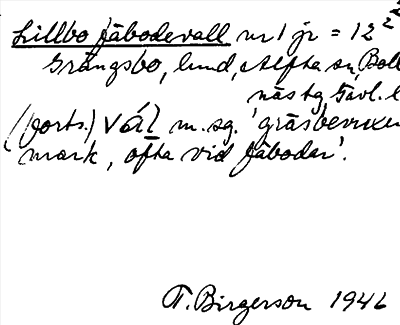 Lillbo fäbodevall nr 1 jr = 12 2 2
Grängsbo, lund, Alfta sn, Boll
näs tg Gävl. l
(forts.) Väl m. sg. 'gräsbevuxen
mark, ofta vid fäbodar'.
T. Birgerson 1946